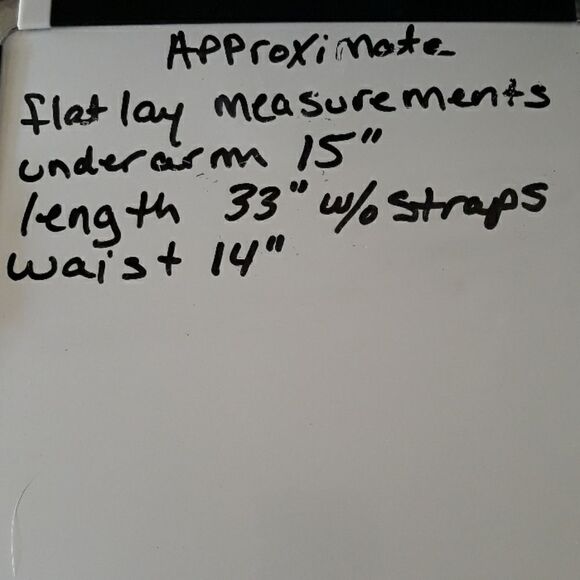 Approximate
flat lay measurements
underarm 15"
length 33" w/o straps
waist 14"